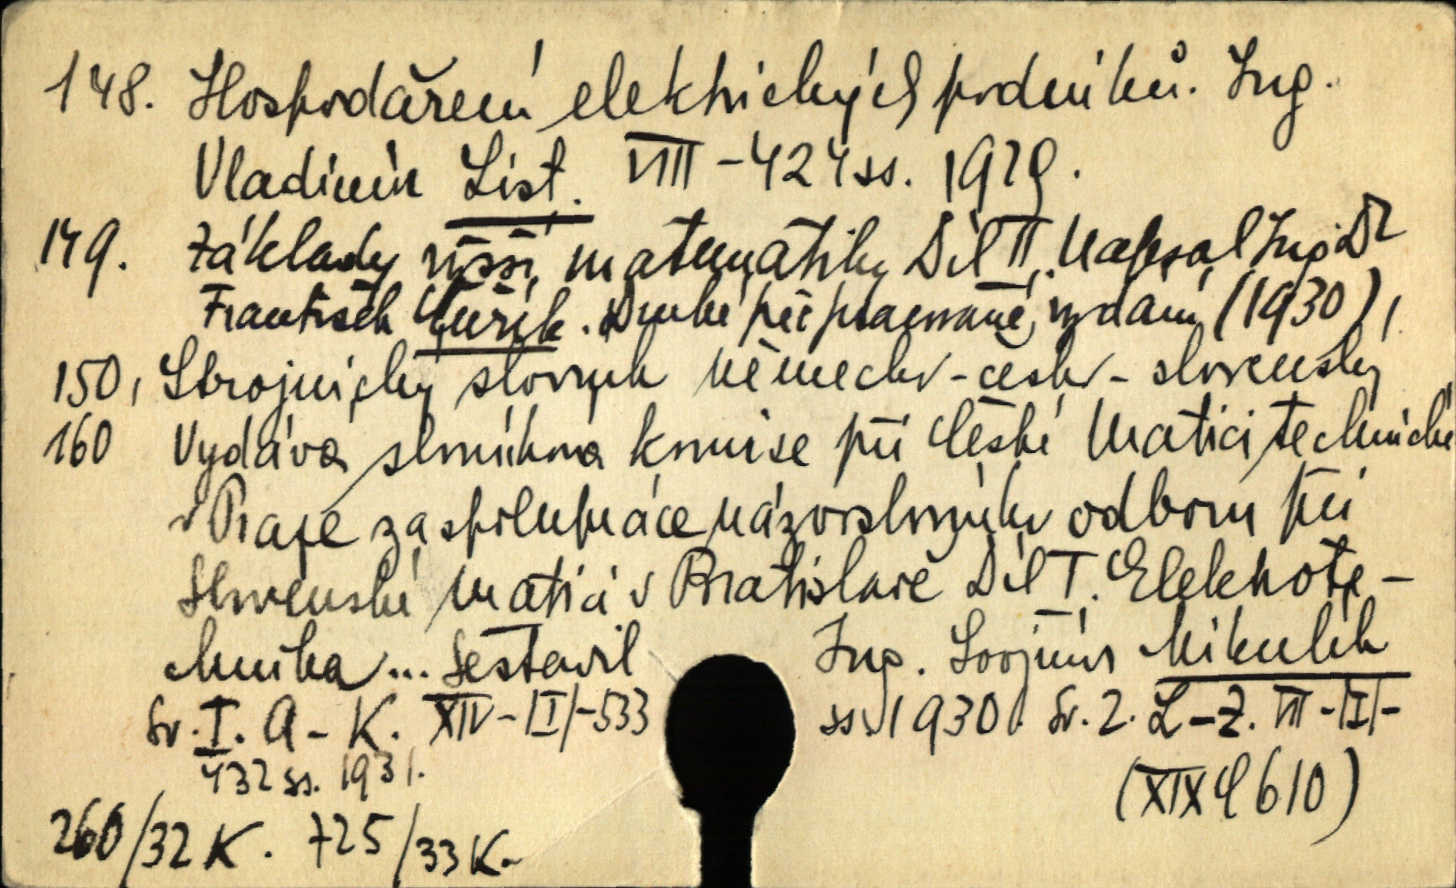 148. Hospodaření elektrických podniků. Ing.
Vladimír List. VIII-424 ss. 1929.
149. Základy vyšší matematiky Díl II. Napsal Ing. Dr
František Čuřík. Druhé přepracované vydání (1930),
150, Strojnický slovník německo-česko-slovenský
160 Vydává slovníková komise při České Matici technické
v Praze za spolupráce názvoslovného odboru při
Slovenské matici v Bratislavě Díl I. Elektrote-
chnika... Sestavil Ing. Lvojmír Mikulík
Sv. I. A-K. XIV-|I|-533 ss. 1930. Sv. 2. L-Z. VII-|I|-
432 ss. 1931.
(XIX C 610)
260/32 K. 725/33 K.